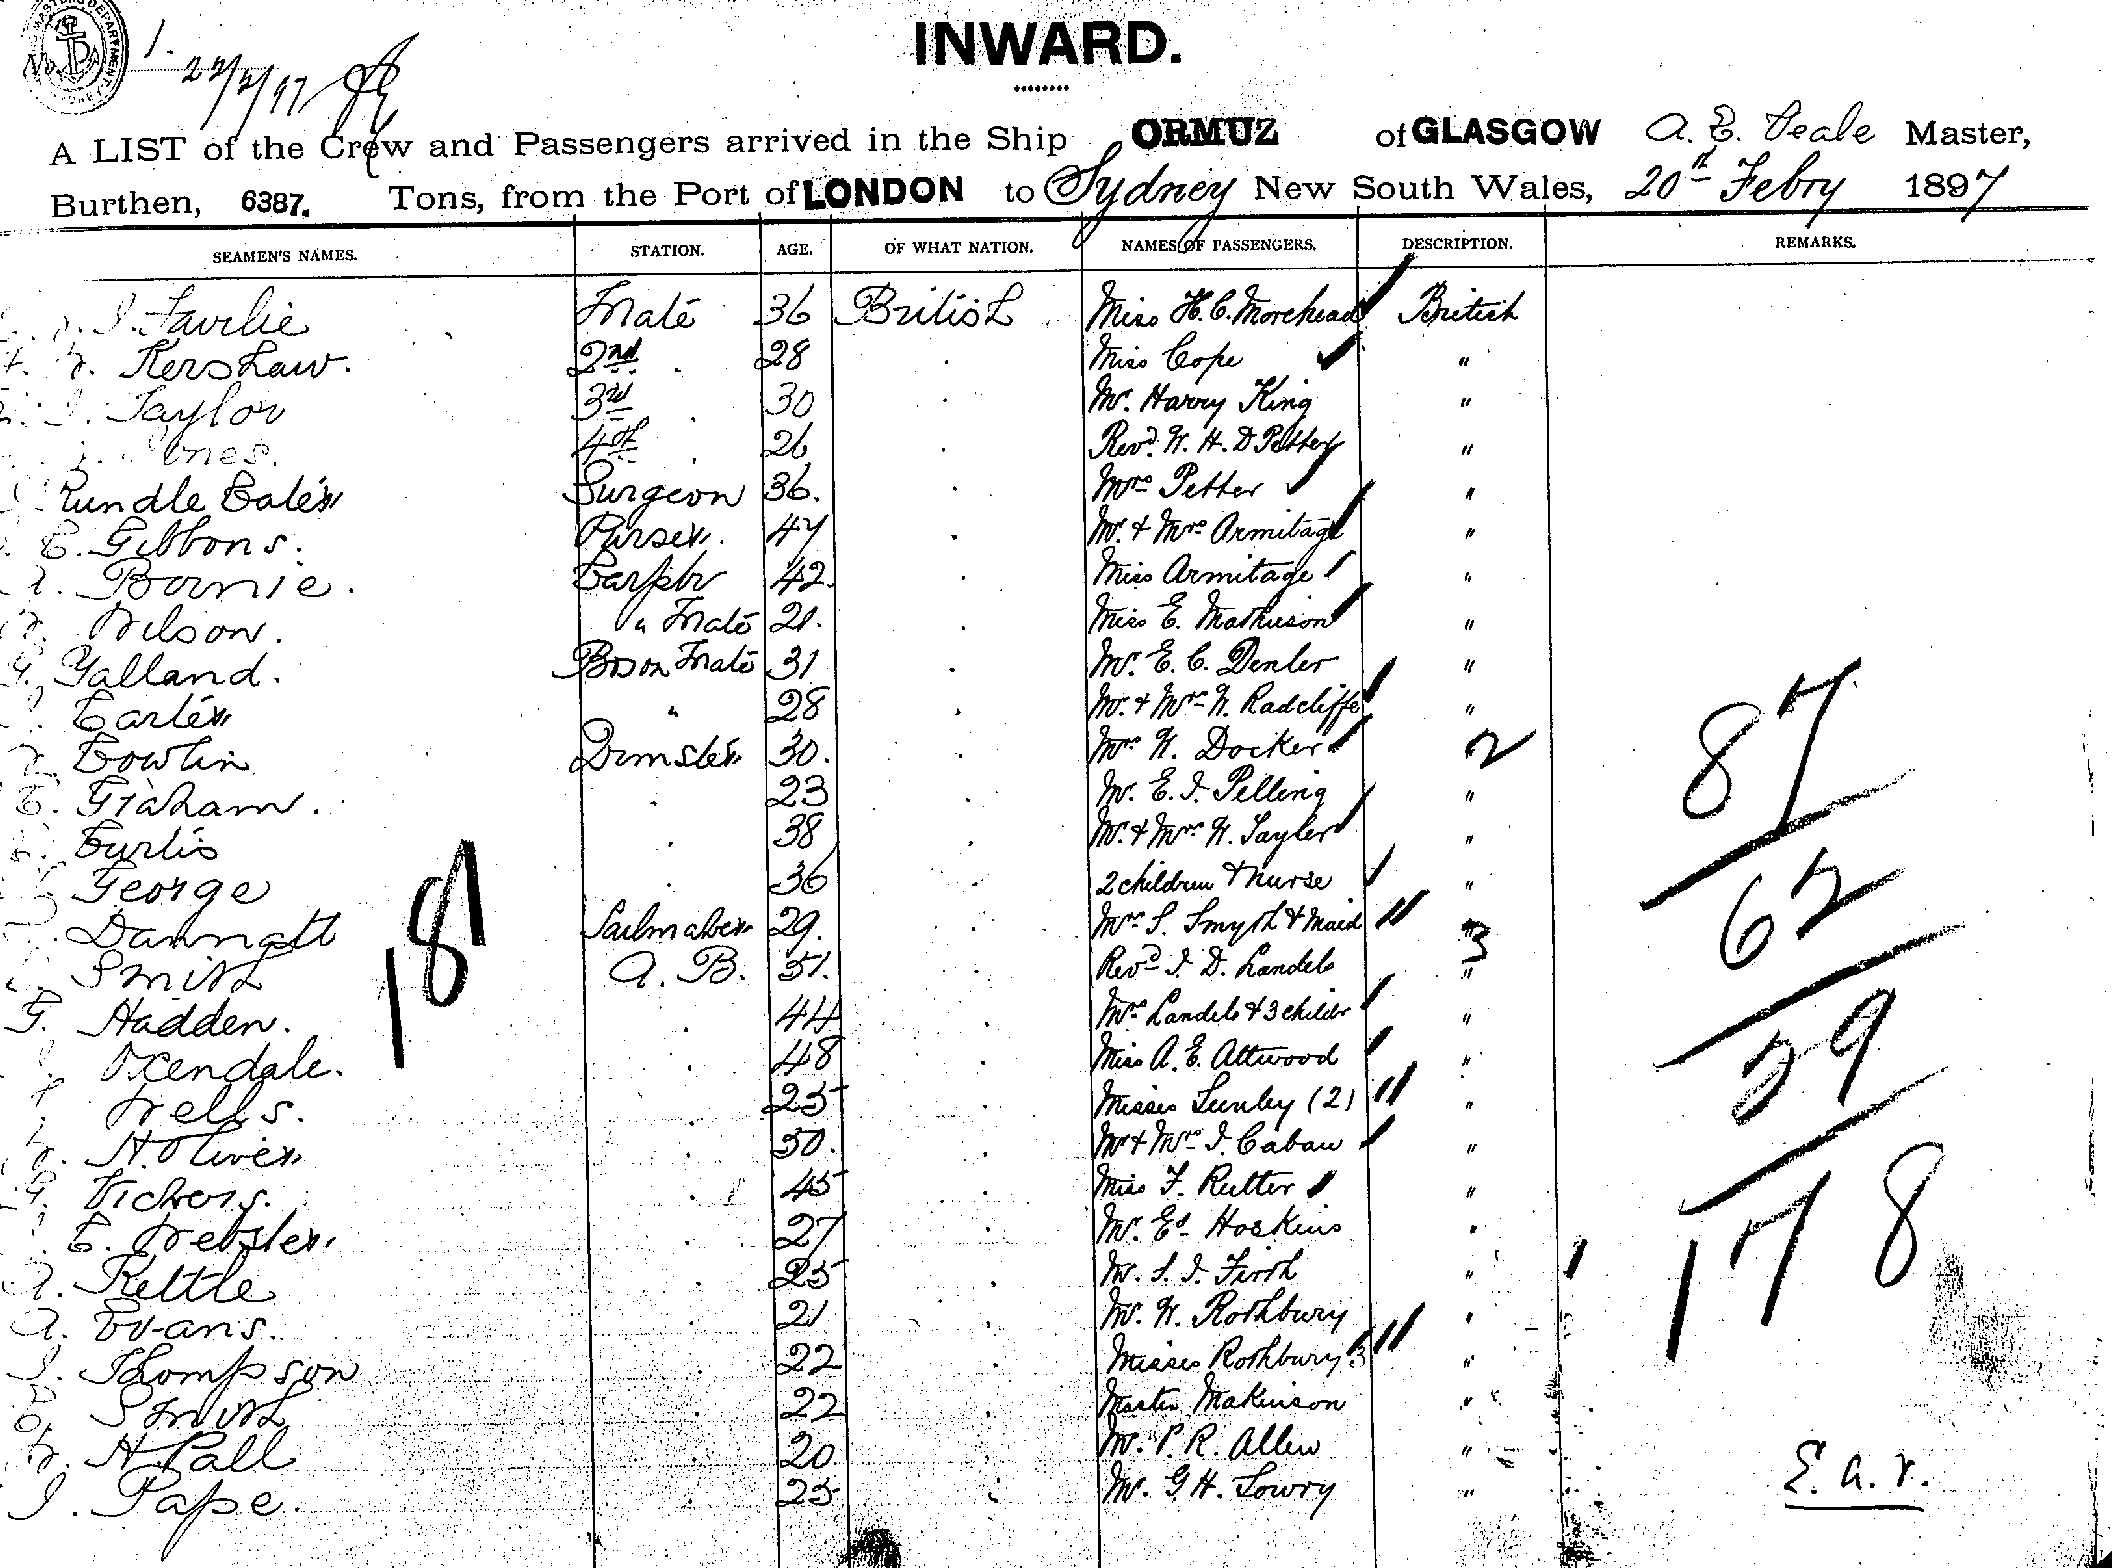 MASTERS DEPARTMENT
1.
22/2/97
INWARD.
A LIST of the Crew and Passengers arrived in the Ship ORMUZ of GLASGOW A. E. Veale Master,
Burthen, 6387. Tons, from the Port of LONDON to Sydney New South Wales, 20th Febry 1897
SEAMEN'S NAMES. STATION. AGE. OF WHAT NATION. NAMES OF PASSENGERS. DESCRIPTION. REMARKS.
J. Favilie Mate 36 British Miss H. C. Morehead British
Kershaw. 2nd 28 Miss Cope "
J. Taylor 3rd 30 Mr. Harry King "
Jones. 4th 26 Revd. W. H. D Petter "
Rundle Cater Surgeon 36. Mrs Petter "
E. Gibbons. Purser. 47 Mr. & Mrs Armitage "
A. Bownie. Carptr 42. Miss Armitage "
W. Wilson. " Mate 21. Miss E. Mathieson "
G. Yalland. Bosn Mate 31 Mr. E. C. Denler "
Carter " 28 Mr. & Mrs W. Radcliffe "
Cowlin 30. Mrs W. Docker 2
E. Graham. 23 Mr. E. J. Pelling "
Curtis 38 Mr. & Mrs W. Tayler "
George 36 2 children & nurse "
Dannatt Sailmaker 29. Mrs S. Smyth & Maid 3
Smith A. B. 51. Revd J. D. Landels "
G. Hadden. 44 Mrs Landels & 3 childr "
Oxendale. 48 Miss A. E. Attwood "
Wells. 25 Misses Lunley (2) "
H. Oliver 50. Mr & Mrs J. Cabau "
G. Vickers. 45 Miss F. Rutter "
E. Webster. 27 Mr. Ed. Hoskins "
A. Kettle 25 Mr. S. J. Firth "
A. Evans. 21 Mr. W. Rothbury "
J. Thompson 22 Misses Rothbury 3 "
Smith 22 Master Makinson "
W. H. Pall 20 Mr. P. R. Allen "
J. Pape. 25 Mr. G H. Lowry "
187
87
62
29
178
E. a. r.